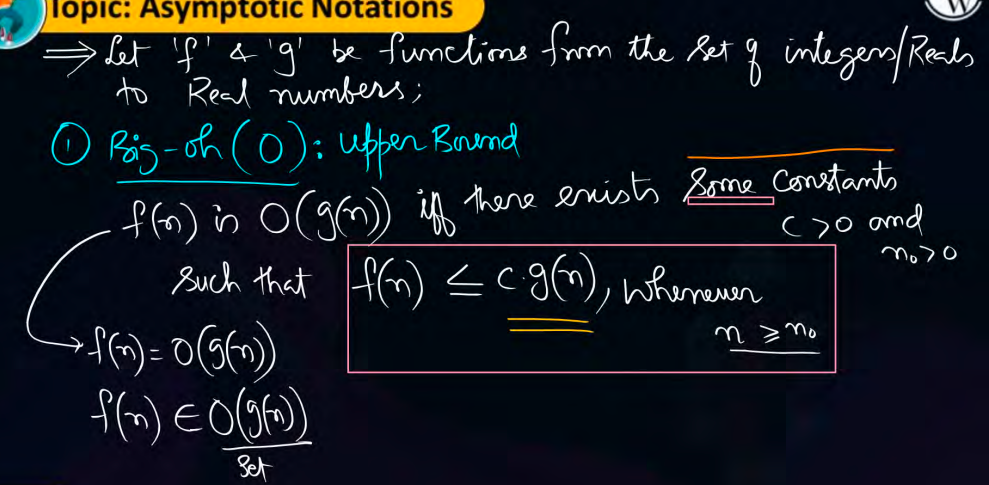 Topic: Asymptotic Notations
W
⇒ Let 'f' & 'g' be functions from the set of integers/Reals
to Real numbers;
① Big-oh (O): Upper Bound
f(n) is O(g(n)) iff there exists Some Constants
C >0 and
n₀>0
Such that f(n) ≤ c.g(n), whenever
n ≥ n₀
f(n) = O(g(n))
f(n) ∈ O(g(n))
Set